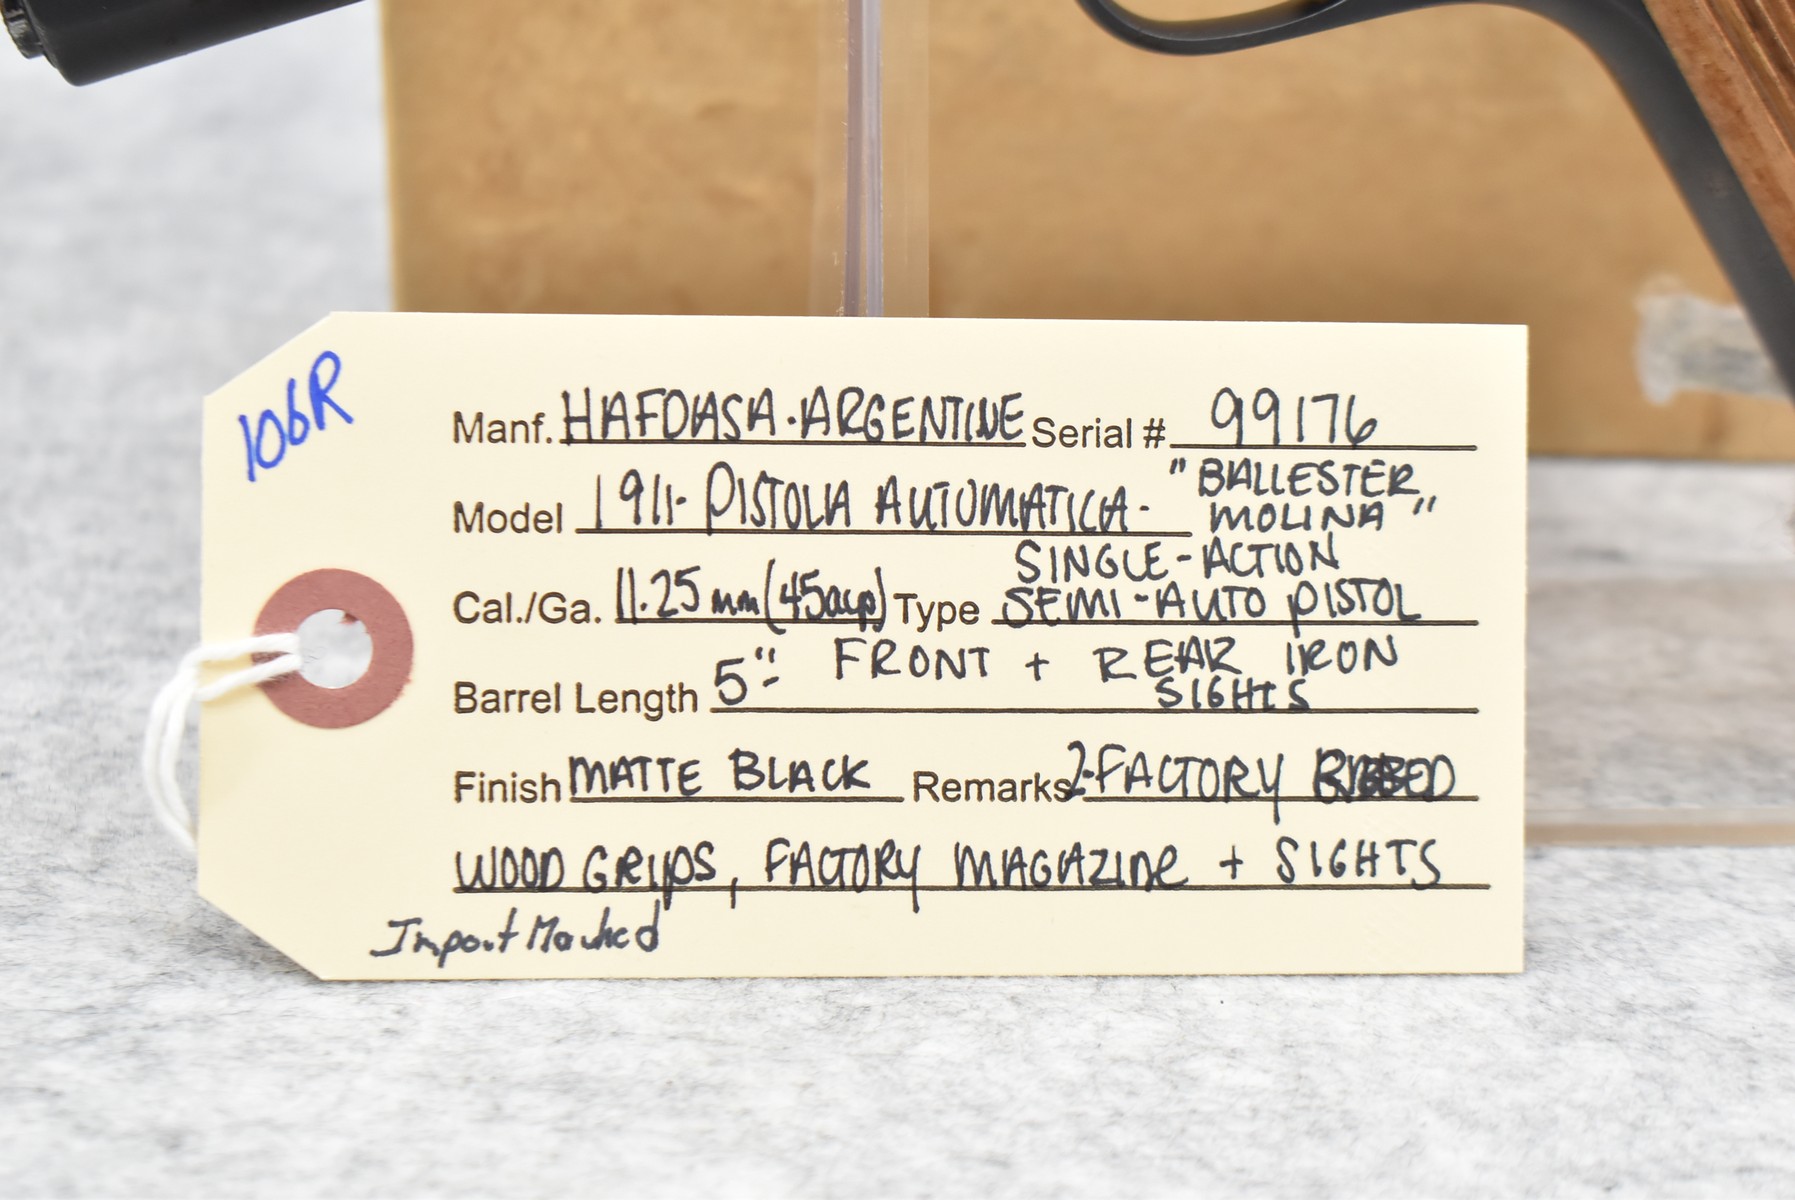 106R
Manf. HAFDASA. ARGENTINE Serial # 99176
Model 1911- PISTOLA AUTOMATICA- "BALLESTER
MOLINA"
SINGLE-ACTION
Cal./Ga. 11.25mm (45acp) Type SEMI-AUTO PISTOL
Barrel Length 5"- FRONT + REAR IRON
SIGHTS
Finish MATTE BLACK Remarks 2-FACTORY RIBBED
WOOD GRIPS, FACTORY MAGAZINE + SIGHTS
Import Marked